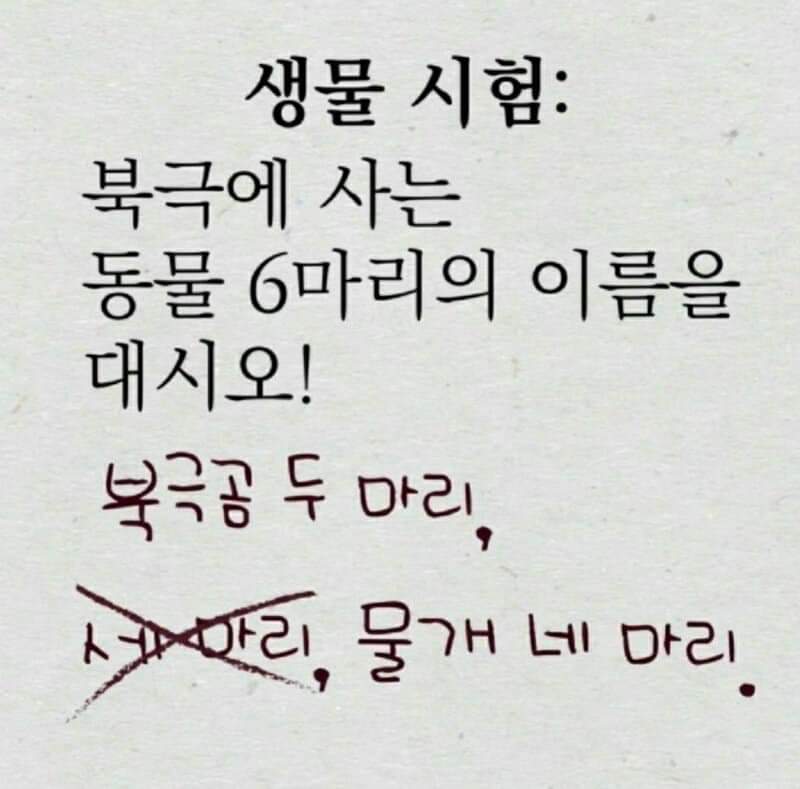 생물 시험:
북극에 사는
동물 6마리의 이름을
대시오!
북극곰 두 마리,
세 마리, 물개 네 마리.